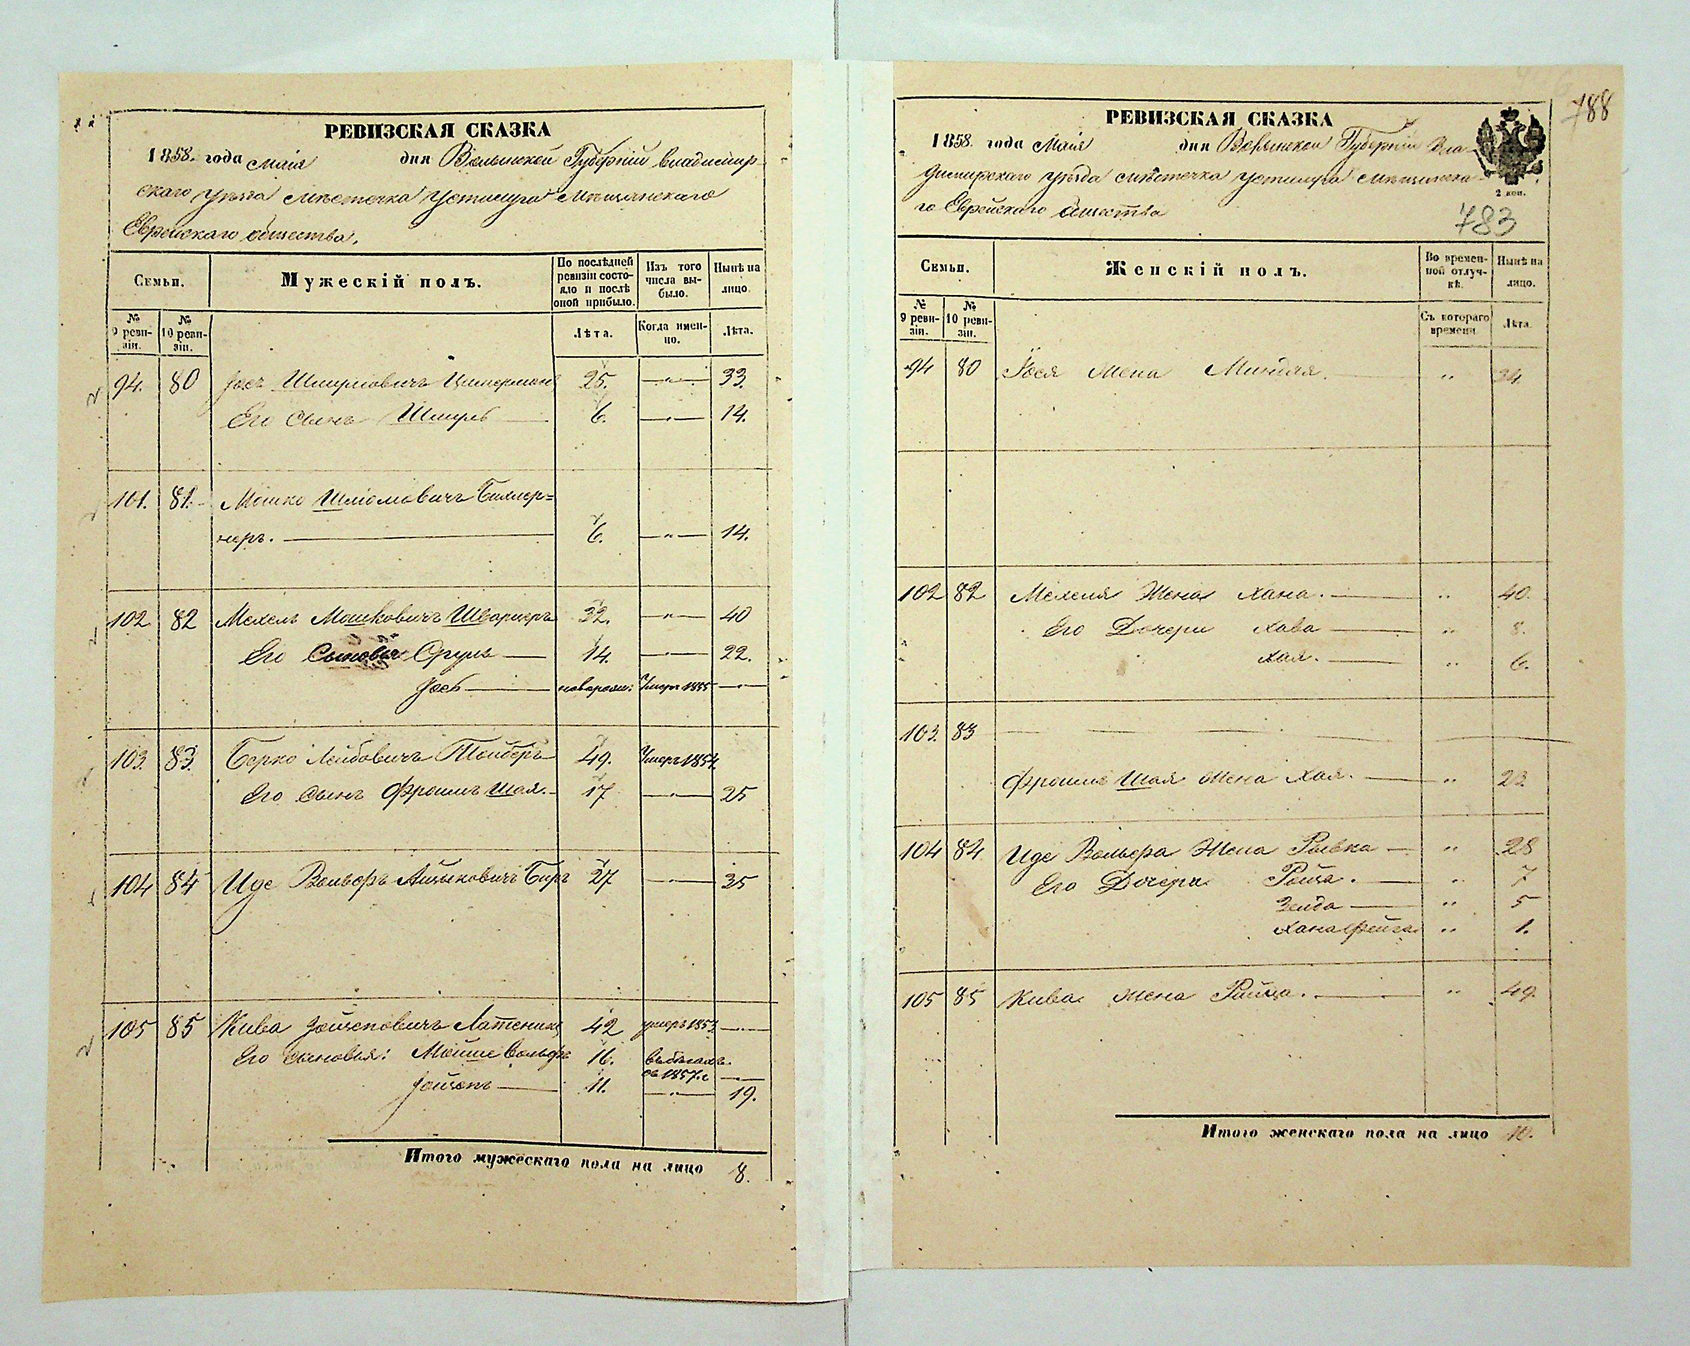 РЕВИЗСКАЯ СКАЗКА
1858. года маія дня Волынской Губерніи Владимір-
скаго уѣзда мѣстечка Устилуга Мѣщанскаго
Еврейскаго общества.
Семьи. Мужескій полъ. По послѣдней ревизіи состояло и послѣ оной прибыло. Изъ того числа выбыло. Нынѣ на лицо.
№ 9 ревизіи. № 10 ревизіи. Лѣта. Когда именно. Лѣта.
94. 80 Іось Шмулiовичъ Цимерманъ 25. —"— 33.
Его сынъ Шмуль 6. —"— 14.
101. 81. Мошко Шліомовичъ
неръ. 6. —"— 14.
102 82 Мехель Мошковичъ Шварцеръ 32. —"— 40
Его Сыновья Сруль 14. —"— 22.
Іось новорож: Умеръ 1855 —
103. 83. Берко Лейбовичъ Тойберъ 49. Умеръ 1854.
Его Сынъ Фроимъ Шая. 17 —"— 25
104 84 Иде Вольфъ Айзыковичъ 27 —"— 35
105 85 Кива Іойсеповичъ 42 умеръ 1853. —
Его сыновья: Мойше Вольфъ 16. въ бѣгахъ
съ 1857. г —
Іойсепъ 11. —"— 19.
Итого мужескаго пола на лицо 8.
788
РЕВИЗСКАЯ СКАЗКА
1858. года Маія дня Волынской Губерніи Вла-
димірскаго уѣзда мѣстечка Устилуга мѣщанска-
го Еврейскаго общества
2 коп.
783
Семьи. Женскій полъ. Во временной отлучкѣ. Нынѣ на лицо.
№ 9 ревизіи. № 10 ревизіи. Съ котораго времени. Лѣта.
94 80 Іося жена Миндля. " 34.
102 82 Мехеля Жена Хана. " 40.
Его Дочери Хава " 8.
Хая. " 6.
103. 83 — — — —
Фроима Шая жена Хая. " 23.
104 84. Иде Вольфа Жена Ривка " 28
Его Дочери Ройза. " 7
Зельда " 5
Хана Фейга " 1.
105 85 Кива жена Райца. " 49.
Итого женскаго пола на лицо 10.